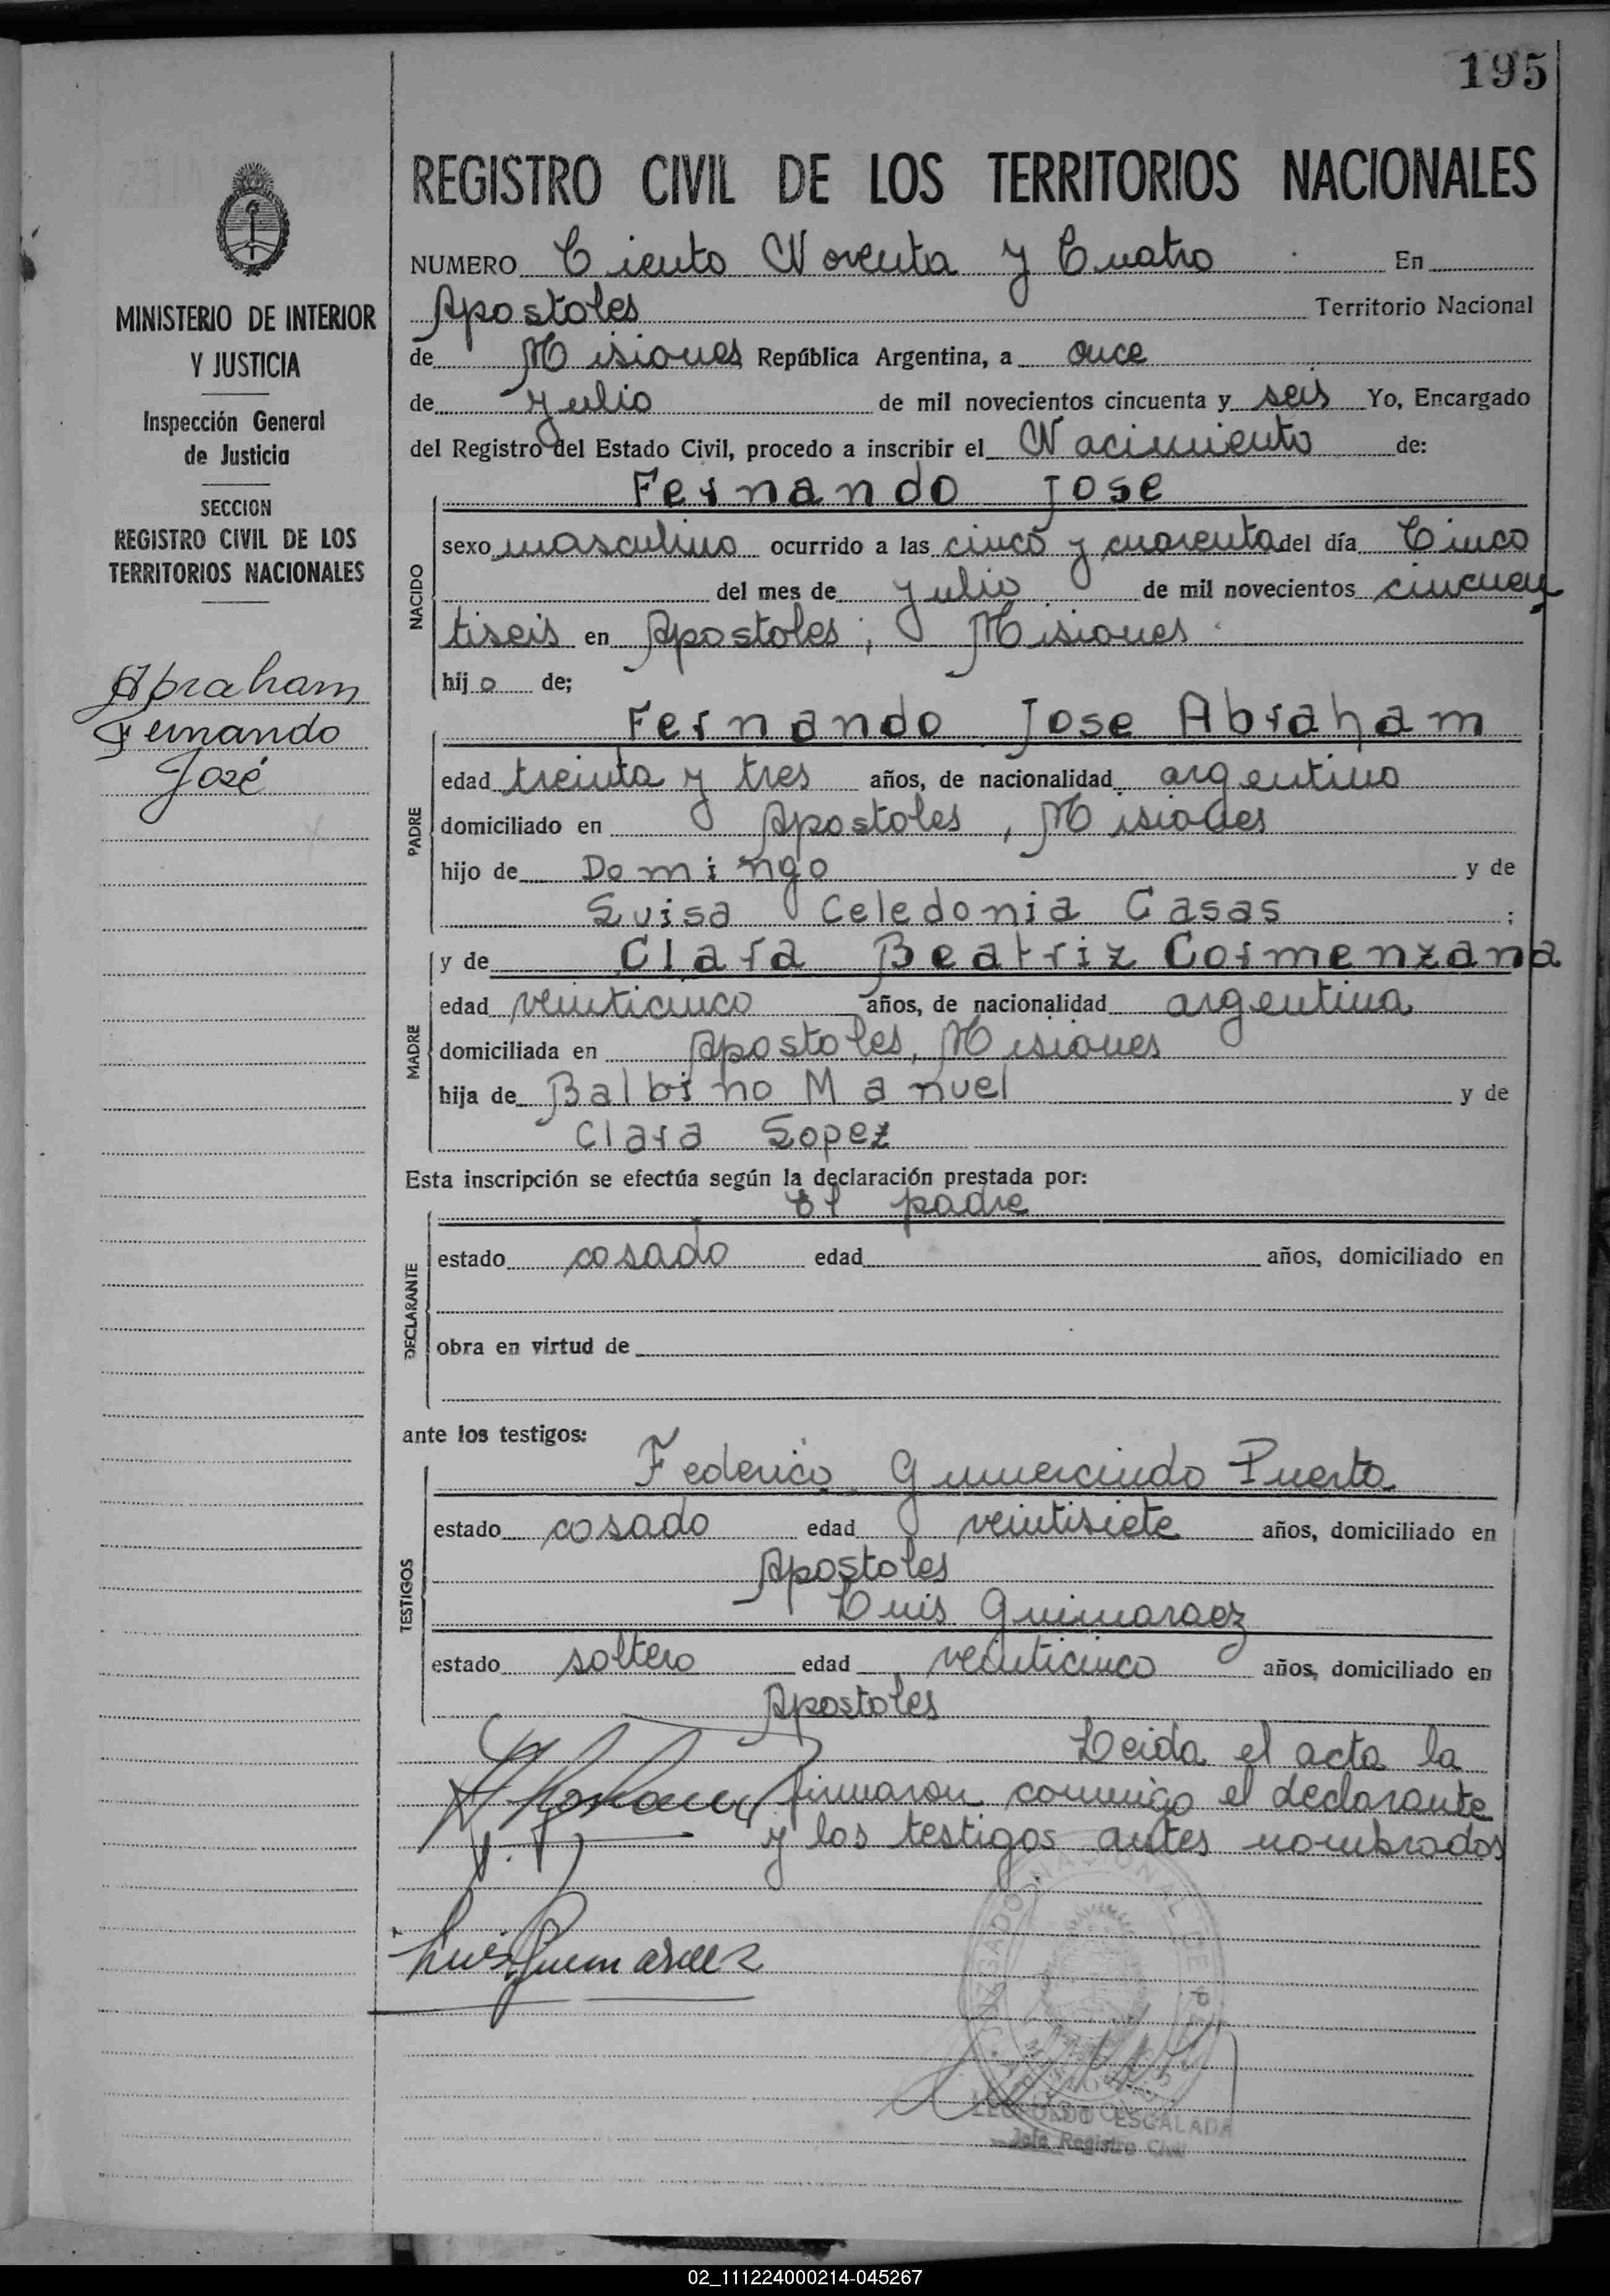 195
REGISTRO CIVIL DE LOS TERRITORIOS NACIONALES
MINISTERIO DE INTERIOR
Y JUSTICIA
Inspección General
de Justicia
SECCION
REGISTRO CIVIL DE LOS
TERRITORIOS NACIONALES
Abraham
Fernando
José
NUMERO Ciento Noventa y Cuatro En
Apostoles Territorio Nacional
de Misiones República Argentina, a once
de Julio de mil novecientos cincuenta y seis Yo, Encargado
del Registro del Estado Civil, procedo a inscribir el Nacimiento de:
NACIDO
Fernando Jose
sexo masculino ocurrido a las cinco y cuarenta del día Cinco
del mes de Julio de mil novecientos cincuen
tiseis en Apostoles; Misiones
hijo de;
PADRE
Fernando Jose Abraham
edad treinta y tres años, de nacionalidad argentino
domiciliado en Apostoles, Misiones
hijo de Domingo y de
Luisa Celedonia Casas ;
MADRE
y de Clara Beatriz Cormenzana
edad veinticinco años, de nacionalidad argentina
domiciliada en Apostoles, Misiones
hija de Balbino Manuel y de
Clara Lopez
Esta inscripción se efectúa según la declaración prestada por:
DECLARANTE
El padre
estado casado edad años, domiciliado en
obra en virtud de
ante los testigos:
TESTIGOS
Federico Gumercindo Puerta
estado casado edad veintisiete años, domiciliado en
Apostoles
Luis Guimaraez
estado soltero edad veinticinco años, domiciliado en
Apostoles
Leida el acta la
firmaron conmigo el declarante
y los testigos antes nombrados
Luis Guimaraez
LEOPOLDO ESCALADA
Jefe Registro Civil
02_111224000214-045267